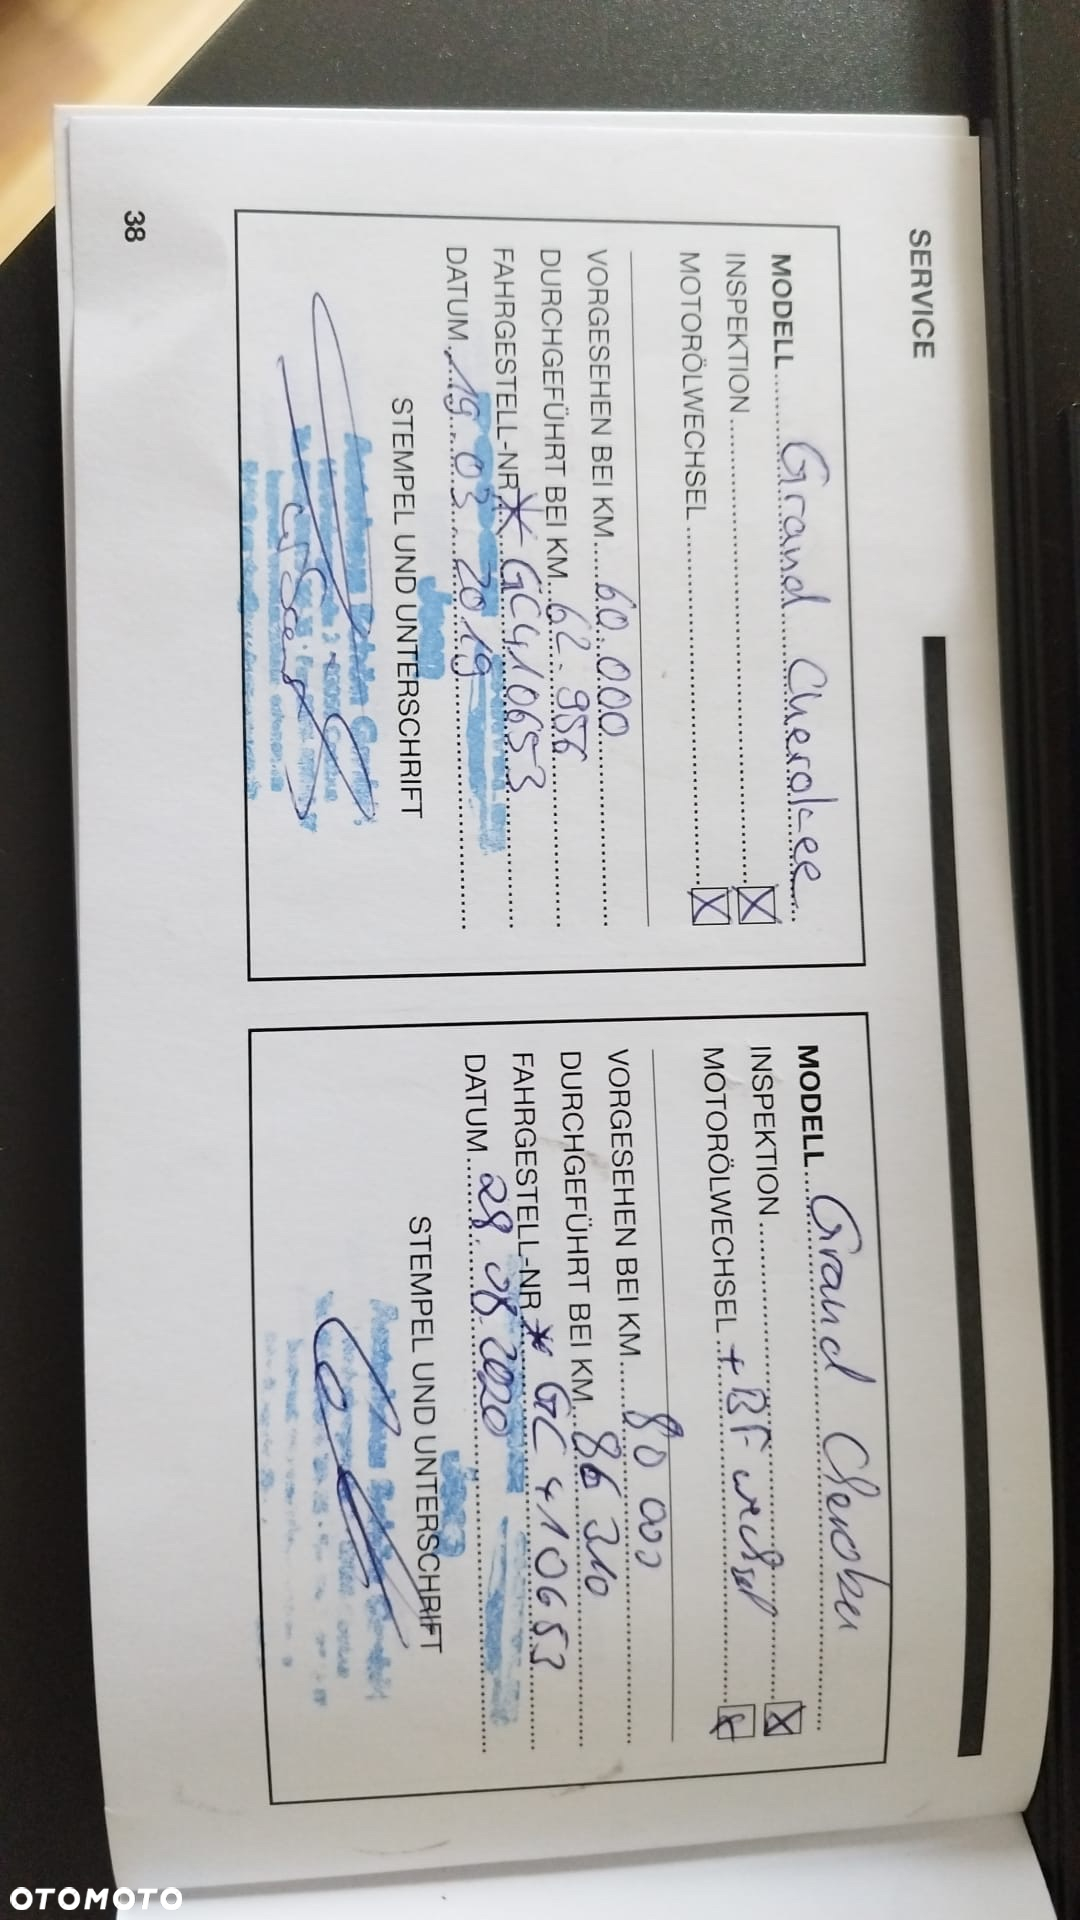 SERVICE
MODELL Grand Cherokee
INSPEKTION X
MOTORÖLWECHSEL X
VORGESEHEN BEI KM 60.000
DURCHGEFÜHRT BEI KM 62.956
FAHRGESTELL-NR * GC410653
DATUM 19.03.2019
Jeep
STEMPEL UND UNTERSCHRIFT
MODELL Grand Cherokee
INSPEKTION X
MOTORÖLWECHSEL + BF wechsel X
VORGESEHEN BEI KM 80 000
DURCHGEFÜHRT BEI KM 86 310
FAHRGESTELL-NR * GC 410653
DATUM 28.08.2020
STEMPEL UND UNTERSCHRIFT
38
OTOMOTO